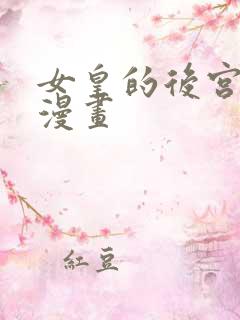 女皇的後宮
漫畫
紅豆